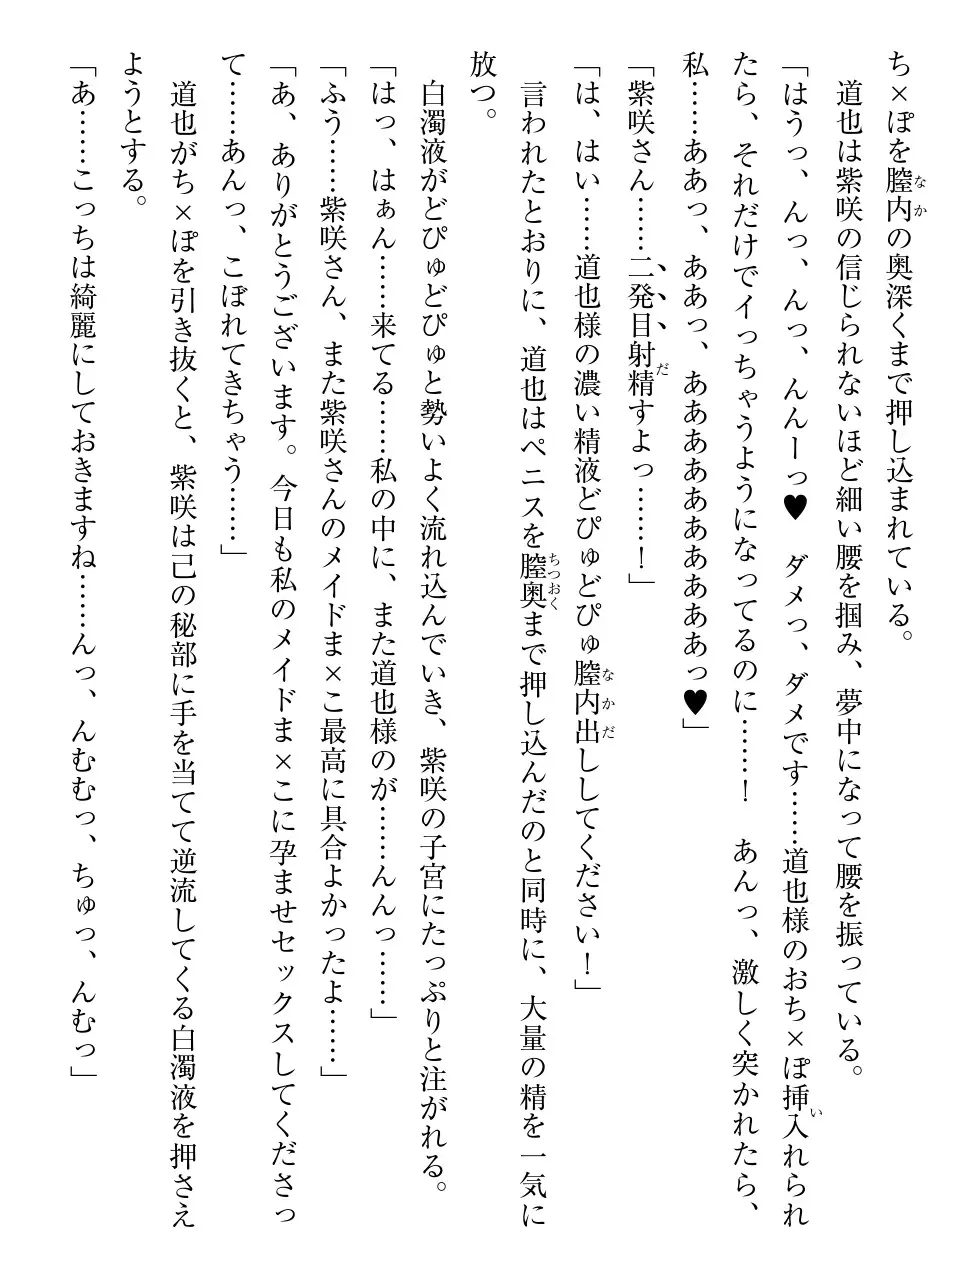 ち×ぽを膣内の奥深くまで押し込まれている。
　道也は紫咲の信じられないほど細い腰を掴み、夢中になって腰を振っている。
「はうっ、んっ、んっ、んんーっ♥　ダメっ、ダメです……道也様のおち×ぽ挿入れられ
たら、それだけでイっちゃうようになってるのに……！　あんっ、激しく突かれたら、
私……ああっ、ああっ、ああああああああああっ♥」
「紫咲さん……二発目射精すよっ……！」
「は、はい……道也様の濃い精液どぴゅどぴゅ膣内出ししてください！」
　言われたとおりに、道也はペニスを膣奥まで押し込んだのと同時に、大量の精を一気に
放つ。
　白濁液がどぴゅどぴゅと勢いよく流れ込んでいき、紫咲の子宮にたっぷりと注がれる。
「はっ、はぁん……来てる……私の中に、また道也様のが……んんっ……」
「ふう……紫咲さん、また紫咲さんのメイドま×こ最高に具合よかったよ……」
「あ、ありがとうございます。今日も私のメイドま×こに孕ませセックスしてくださっ
て……あんっ、こぼれてきちゃう……」
　道也がち×ぽを引き抜くと、紫咲は己の秘部に手を当てて逆流してくる白濁液を押さえ
ようとする。
「あ……こっちは綺麗にしておきますね……んっ、んむむっ、ちゅっ、んむっ」